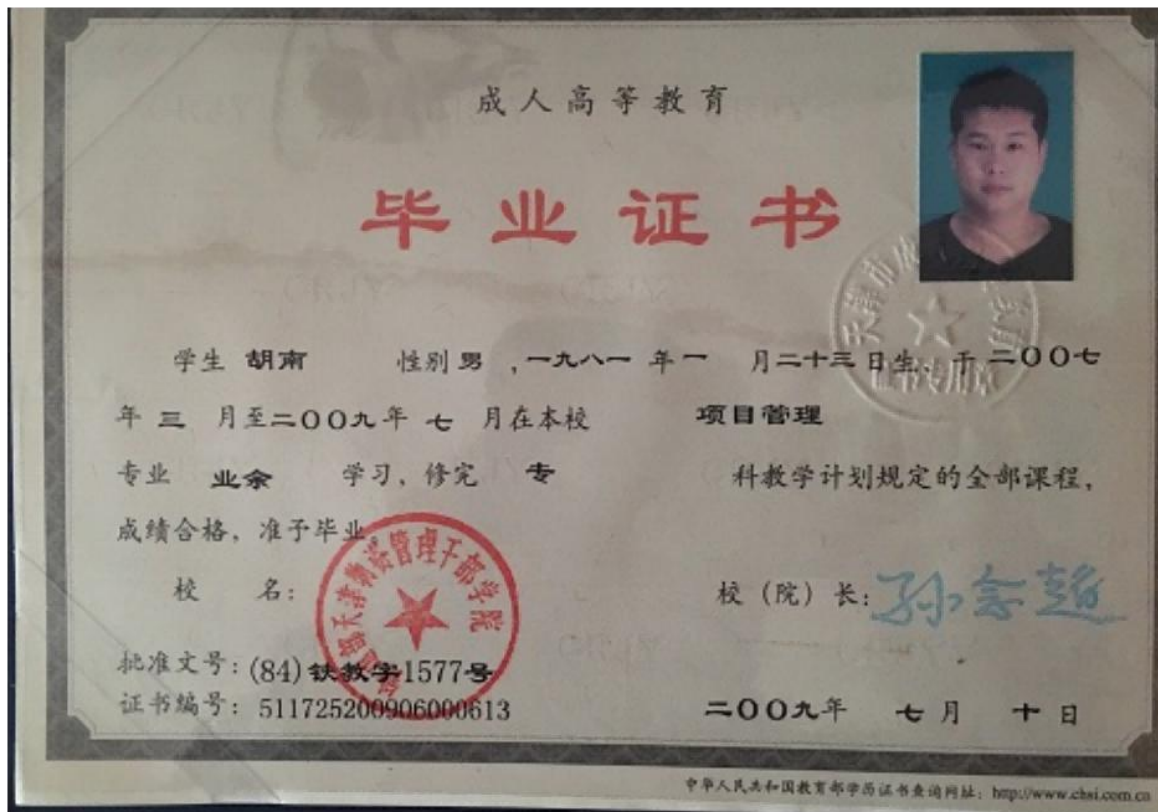 成人高等教育
毕业证书
学生 胡南 性别 男 , 一九八一 年 一 月 二十三 日生、于 二〇〇七
年 三 月至 二〇〇九 年 七 月在本校 项目管理
专业 业余 学习, 修完 专 科教学计划规定的全部课程,
成绩合格, 准予毕业。
校 名: 天津物资管理干部学院
校(院)长: 孙念超
批准文号: (84)铁教字1577号
证书编号: 511725200906000613
二〇〇九年 七 月 十 日
天津市 证书专用章
中华人民共和国教育部学历证书查询网址: http://www.chsi.com.cn